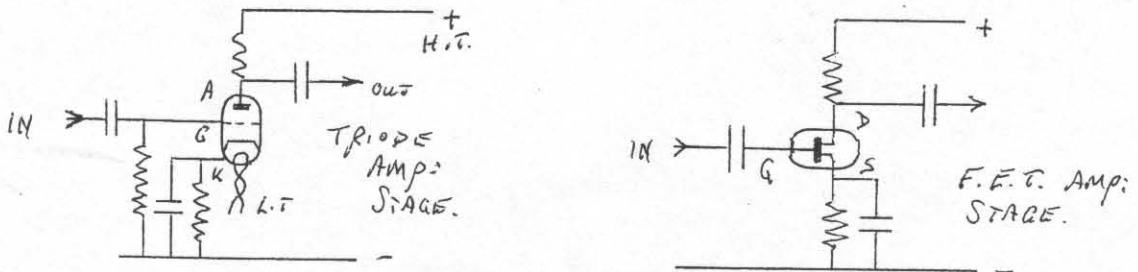 +
H.T.
A
OUT
IN
G
TRIODE
AMP:
STAGE.
K
L.T
-
+
D
IN
G
S
F.E.T. AMP:
STAGE.
-